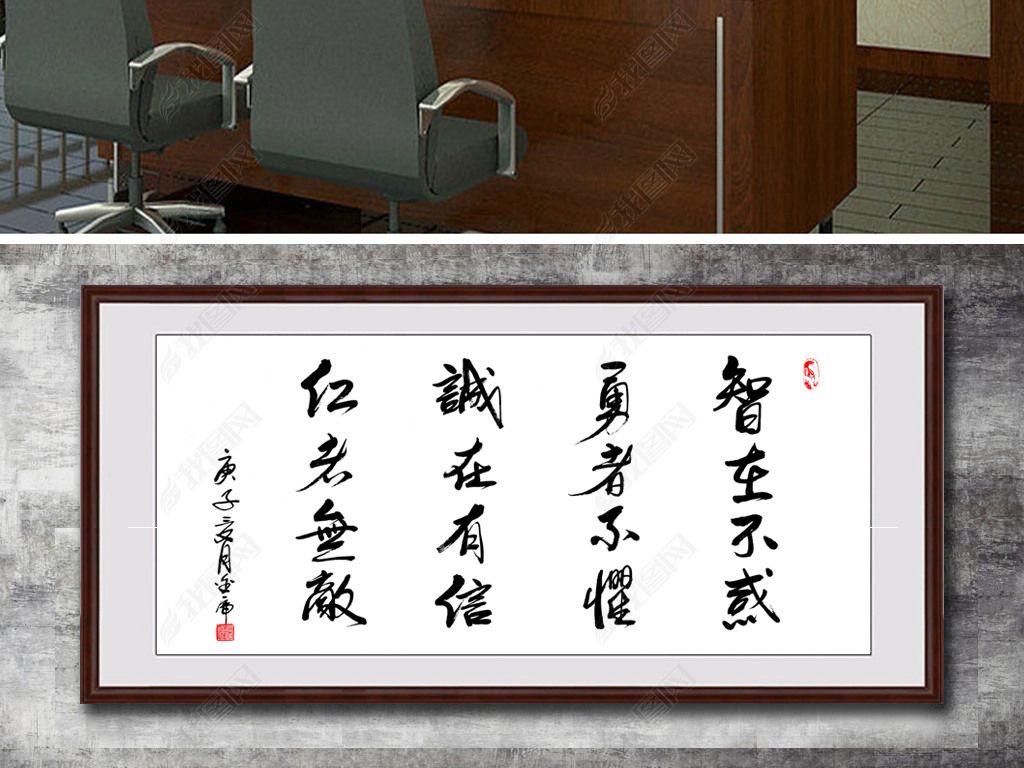 智在不惑
勇者不懼
誠在有信
仁者無敵
庚子
我图网